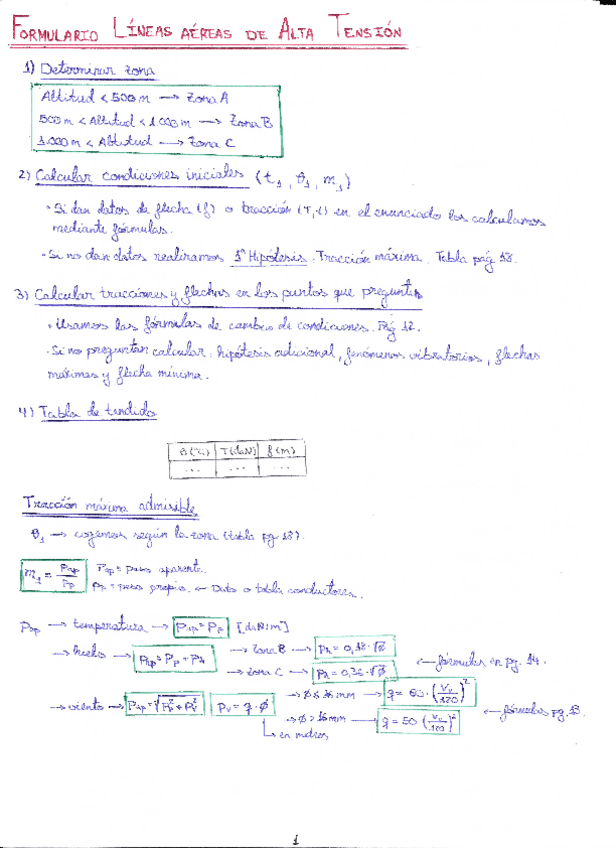 FORMULARIO LÍNEAS AÉREAS DE ALTA TENSIÓN
1) Determinar zona
Altitud < 500 m → Zona A
500 m < Altitud < 1.000 m → Zona B
1.000 m < Altitud → Zona C
2) Calcular condiciones iniciales (t₁, θ₁, m₁)
· Si dan datos de flecha (f) o tracción (T, t) en el enunciado los calculamos
mediante fórmulas.
· Si no dan datos realizamos 1ª Hipótesis. Tracción máxima. Tabla pág 18.
3) Calcular tracciones y flechas en los puntos que pregunten
· Usamos las fórmulas de cambio de condiciones. Pág 12.
· Si no preguntan calcular, hipótesis adicional, fenómenos vibratorios, flechas
máximas y flecha mínima.
4) Tabla de tendido
θ (ºC) T (daN) f (m)
... ... ...
Tracción máxima admisible
θ₁ → cogemos según la zona (tabla pg 18).
m₁ = Pap / Pp Pap = peso aparente.
Pp = peso propio. ← Dato o tabla conductores.
Pap → temperatura → Pap = Pp [daN/m]
→ hielo → Pap = Pp + Ph → Zona B → Ph = 0,18·√Ø
→ Zona C → Ph = 0,36·√Ø ← fórmulas en pg. 14.
→ viento → Pap = √(Pp² + Pv²) Pv = q · Ø → Ø ≤ 16 mm → q = 60 · (Vv/120)²
→ Ø > 16 mm → q = 50 (Vv/120)² ← fórmulas pg. 13.
↳ en metros
1